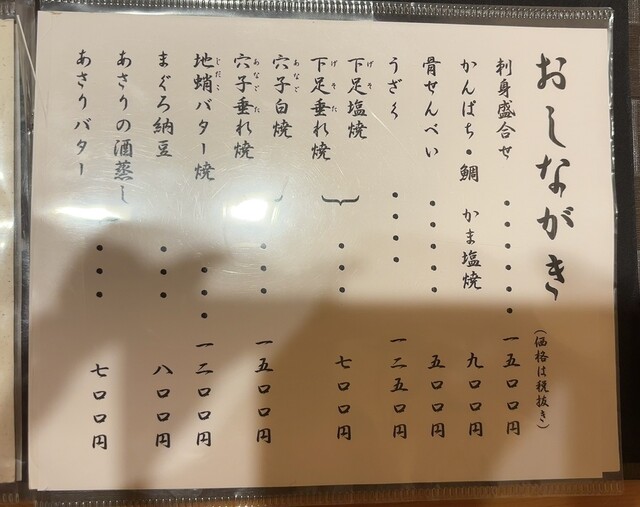 おしながき
(価格は税抜き)
刺身盛合せ・・・・・一五〇〇円
かんぱち・鯛 かま塩焼 九〇〇円
骨せんべい・・・・・五〇〇円
うざく・・・・一二五〇円
下足塩焼
げそ
下足垂れ焼
げそた
・・・七〇〇円
穴子白焼
あなご
穴子垂れ焼
あなごた
・・・一五〇〇円
地蛸バター焼・・・一二〇〇円
じだこ
まぐろ納豆・・・八〇〇円
あさりの酒蒸し
あさりバター
・・・七〇〇円